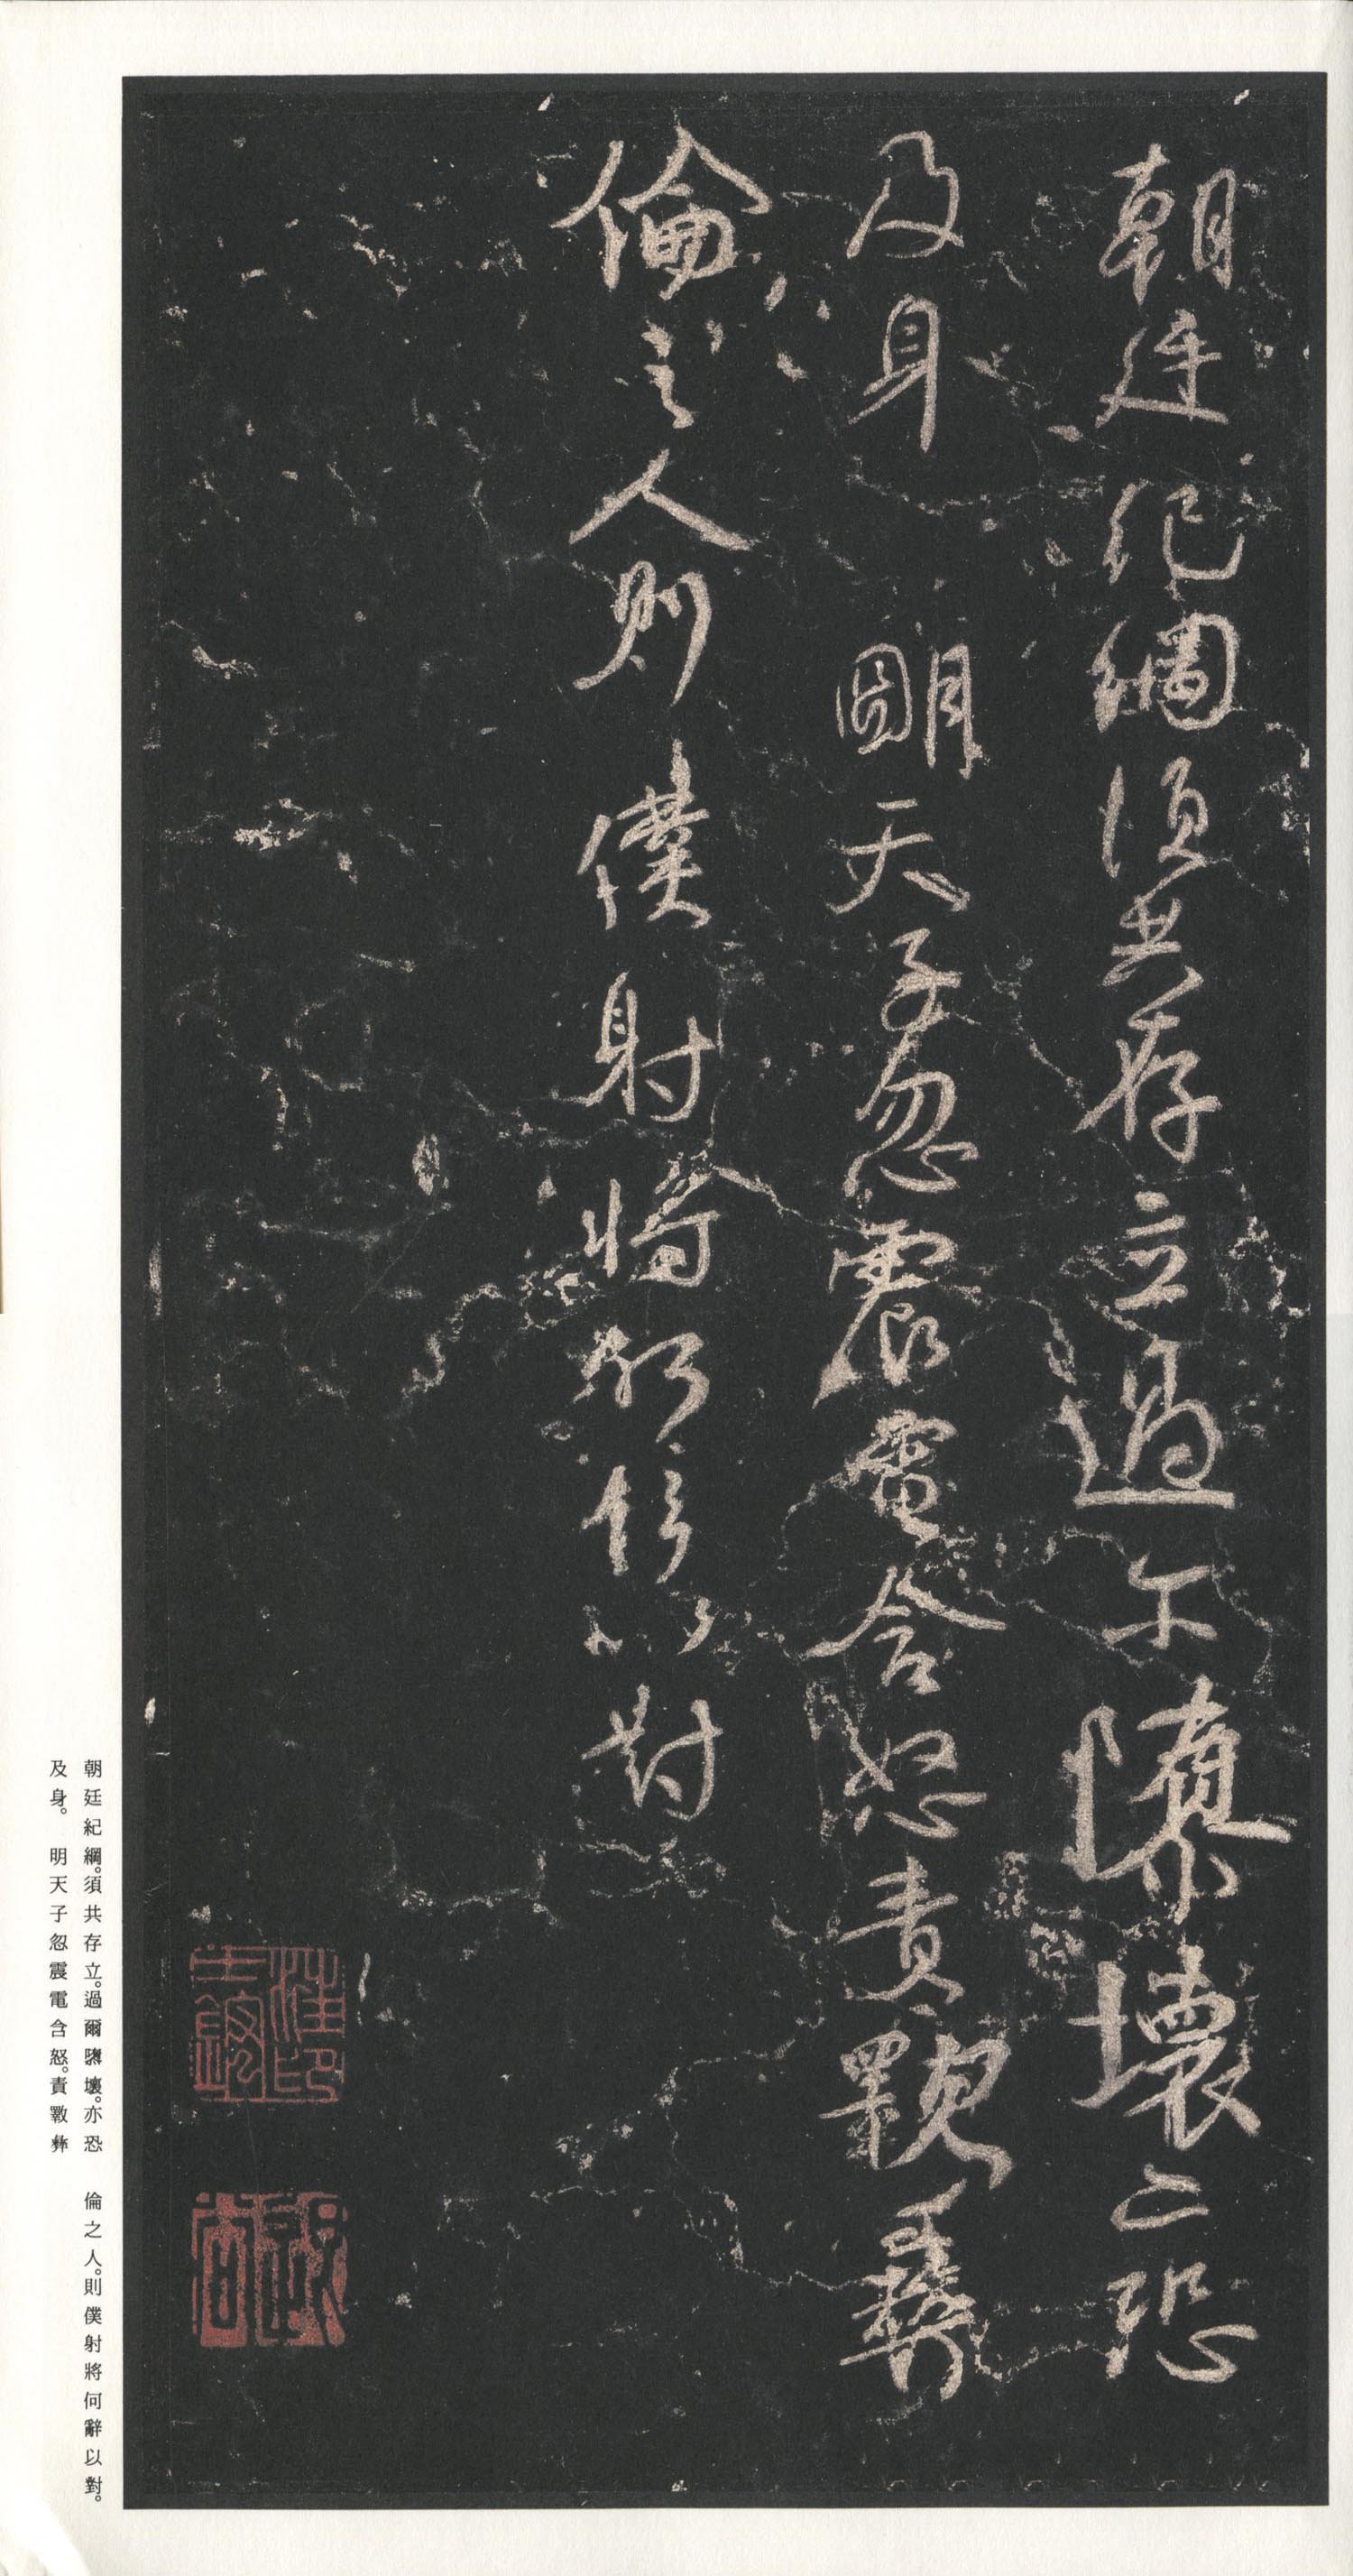 朝廷紀綱須共存立過尒隳壞亦恐
及身 明天子忽震電含怒責斁彝
倫之人則 僕射將何辭以對
朝廷紀綱。須共存立。過爾隳壞。亦恐
及身。 明天子忽震電含怒。責斁彝
倫之人。則僕射將何辭以對。